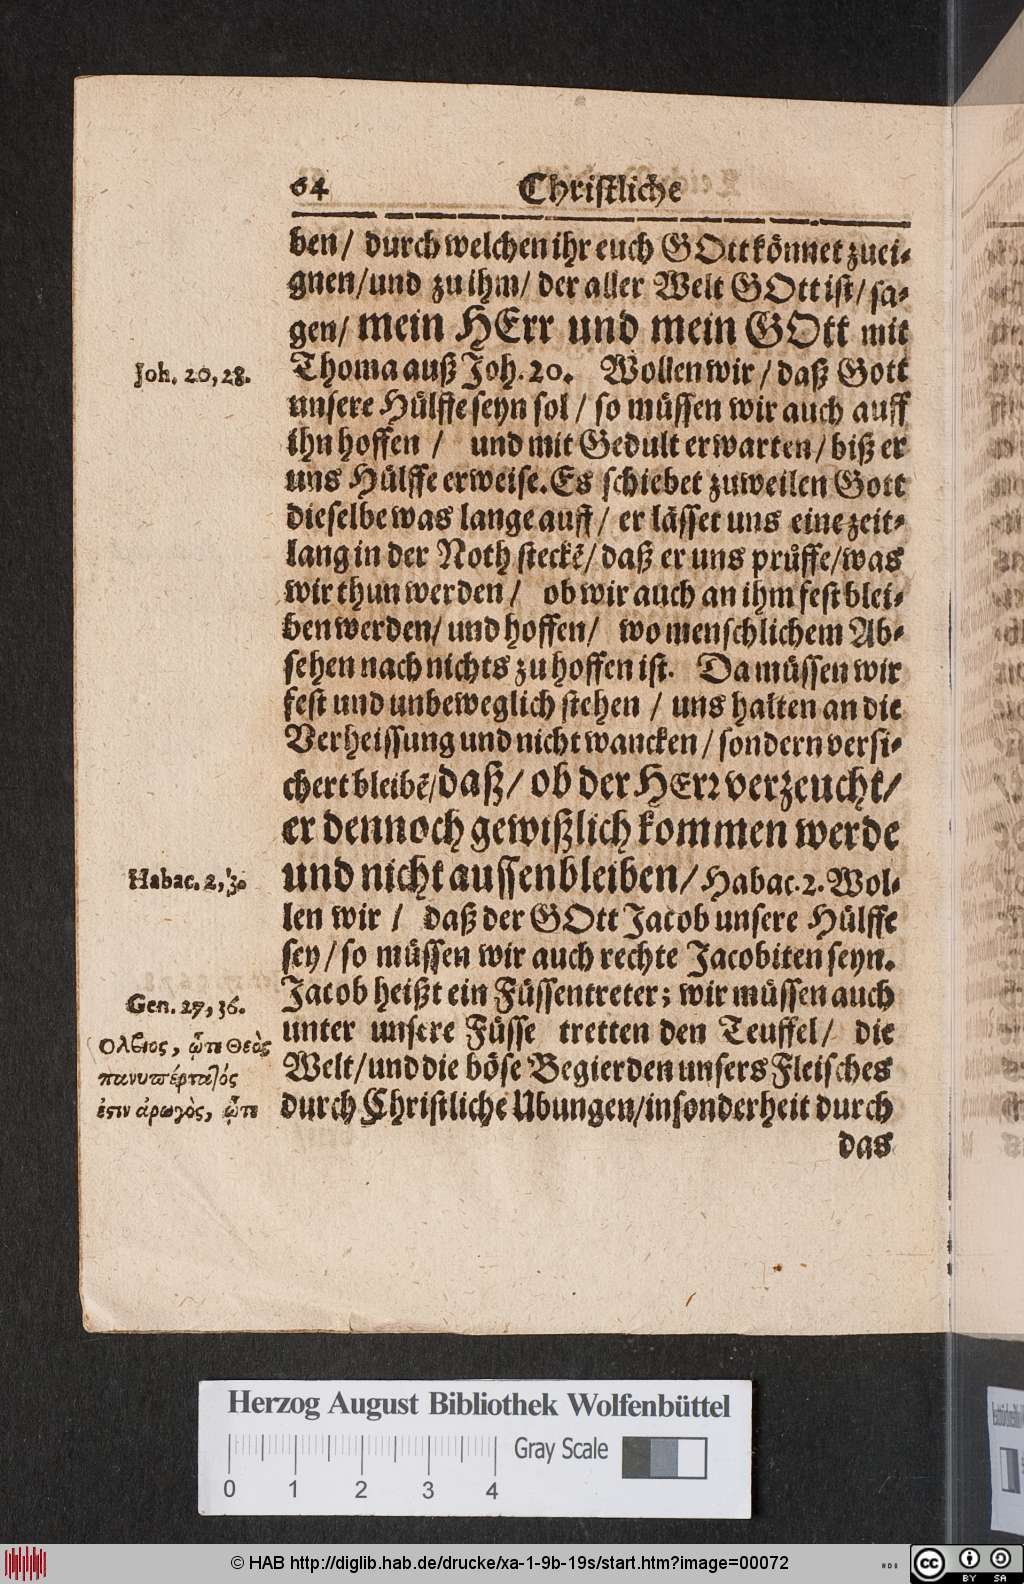 64 Christliche
ben/ durch welchen ihr euch GOtt könnet zuei-
gnen/und zu ihm/ der aller Welt GOtt ist/ sa-
gen/ mein HErr und mein GOtt mit
Joh. 20, 28.
Thoma auß Joh. 20. Wollen wir/ daß Gott
unsere Hülffe seyn sol/ so müssen wir auch auff
ihn hoffen/ und mit Gedult erwarten/ biß er
uns Hülffe erweise. Es schiebet zuweilen Gott
dieselbe was lange auff/ er lässet uns eine zeit-
lang in der Noth steckē/ daß er uns prüffe/was
wir thun werden/ ob wir auch an ihm fest blei-
ben werden/ und hoffen/ wo menschlichem Ab-
sehen nach nichts zu hoffen ist. Da müssen wir
fest und unbeweglich stehen/ uns halten an die
Verheissung und nicht wancken/ sondern versi-
chert bleibē/daß/ ob der HErꝛ verzeucht/
er dennoch gewißlich kommen werde
Habac. 2, 3.
und nicht aussenbleiben/ Habac. 2. Wol-
len wir/ daß der GOtt Jacob unsere Hülffe
sey/ so müssen wir auch rechte Jacobiten seyn.
Gen. 27, 36.
Jacob heißt ein Füssentreter; wir müssen auch
unter unsere Füsse tretten den Teuffel/ die
Welt/ und die böse Begierden unsers Fleisches
durch Christliche Ubungen/insonderheit durch
Ολβιος, ᾧτε Θεὸς
πανυπέρτατός
ἐστιν ἀρωγὸς, ᾧτε
das
Herzog August Bibliothek Wolfenbüttel
Gray Scale
0 1 2 3 4
© HAB http://diglib.hab.de/drucke/xa-1-9b-19s/start.htm?image=00072
cc BY SA